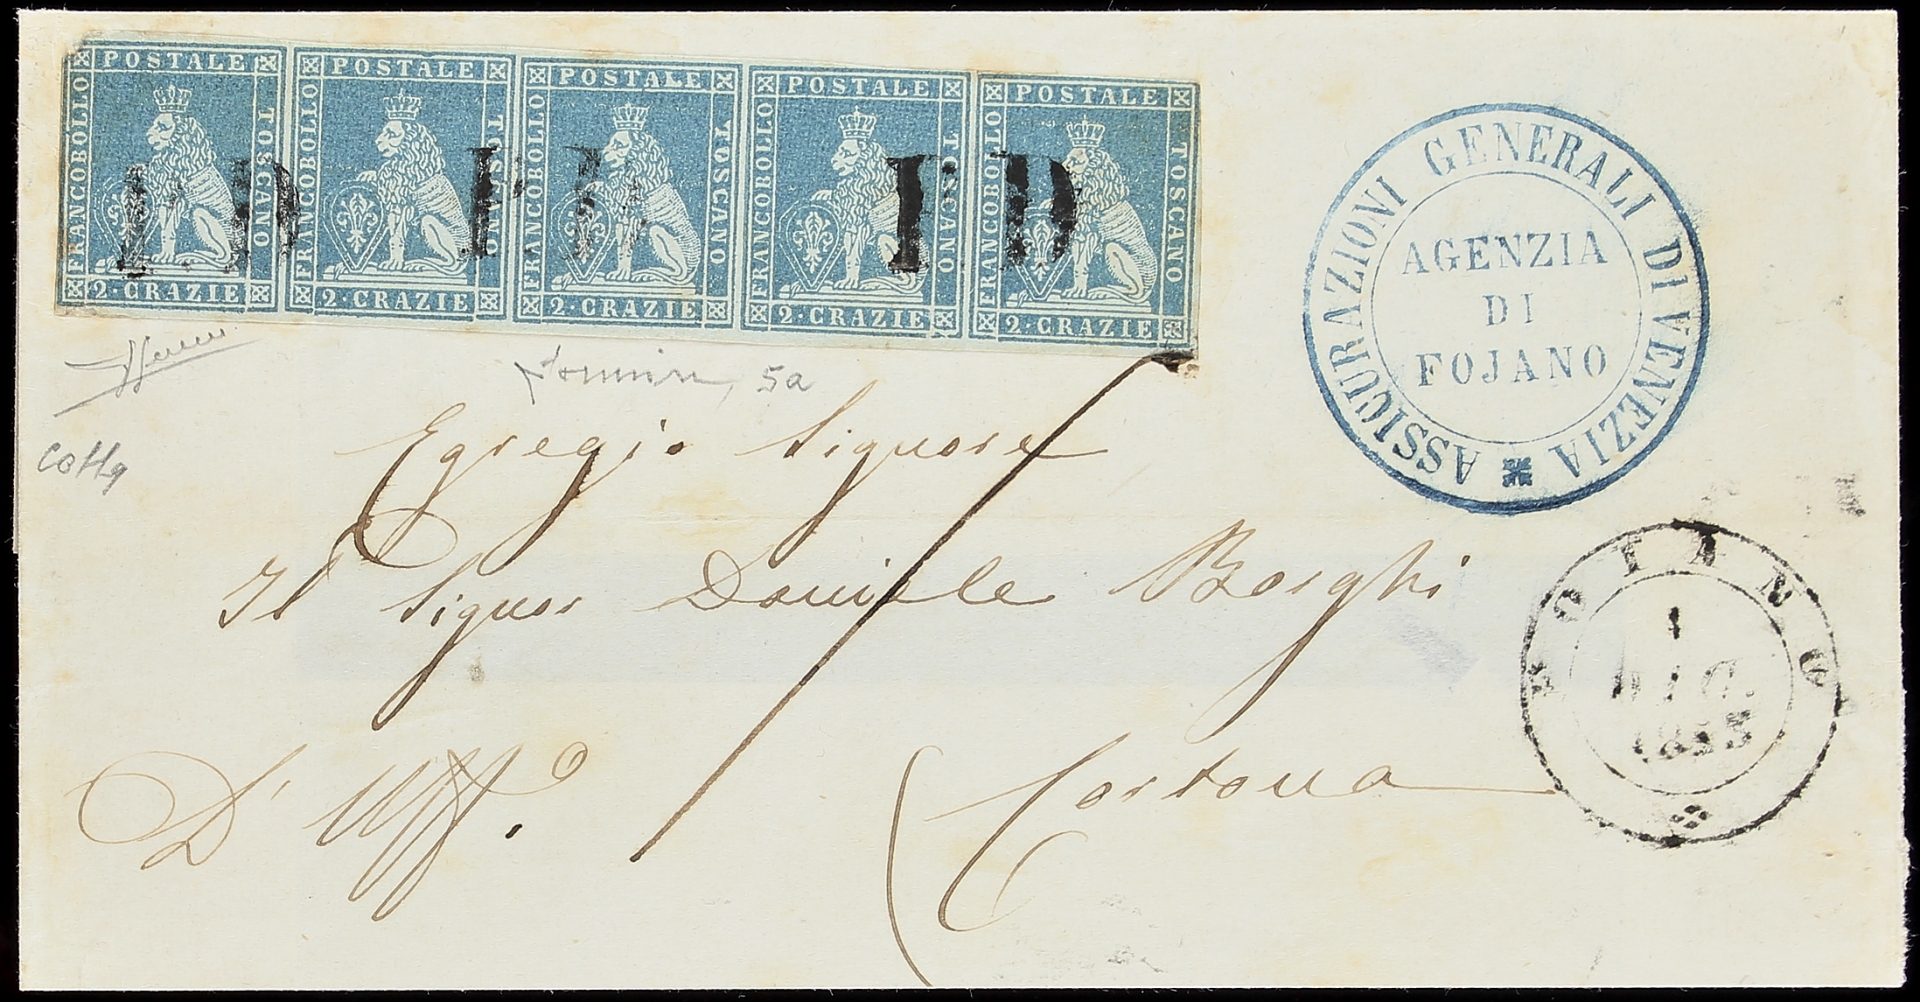 POSTALE POSTALE POSTALE POSTALE POSTALE
FRANCOBOLLO TOSCANO FRANCOBOLLO TOSCANO FRANCOBOLLO TOSCANO FRANCOBOLLO TOSCANO FRANCOBOLLO TOSCANO
PD PD PD
2·CRAZIE 2·CRAZIE 2·CRAZIE 2·CRAZIE 2·CRAZIE
ASSICURAZIONI GENERALI DI VENEZIA
AGENZIA
DI
FOJANO
5a
Egregio Signore
Il Signor Daniele Borghi
D' Uff.o
Cortona
FOIANO
1
DIC.
1853